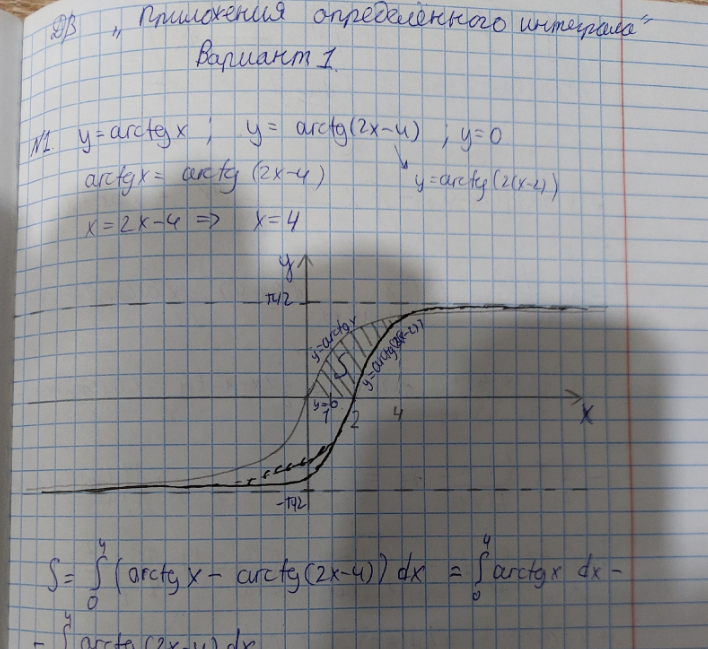 ДЗ „Приложения определённого интеграла“
Вариант 1.
№1 y=arctgx ; y= arctg(2x-4) ; y=0
arctgx= arctg (2x-4)
y=arctg(2(x-2))
x=2x-4 => x=4
y
π/2
y=arctgx
S
y=arctg(2(x-2))
y=0
1
2
4
x
-π/2
S= ∫₀⁴ (arctgx - arctg(2x-4)) dx = ∫₀⁴ arctgx dx -
- ∫⁴ arctg(2x-4)dx